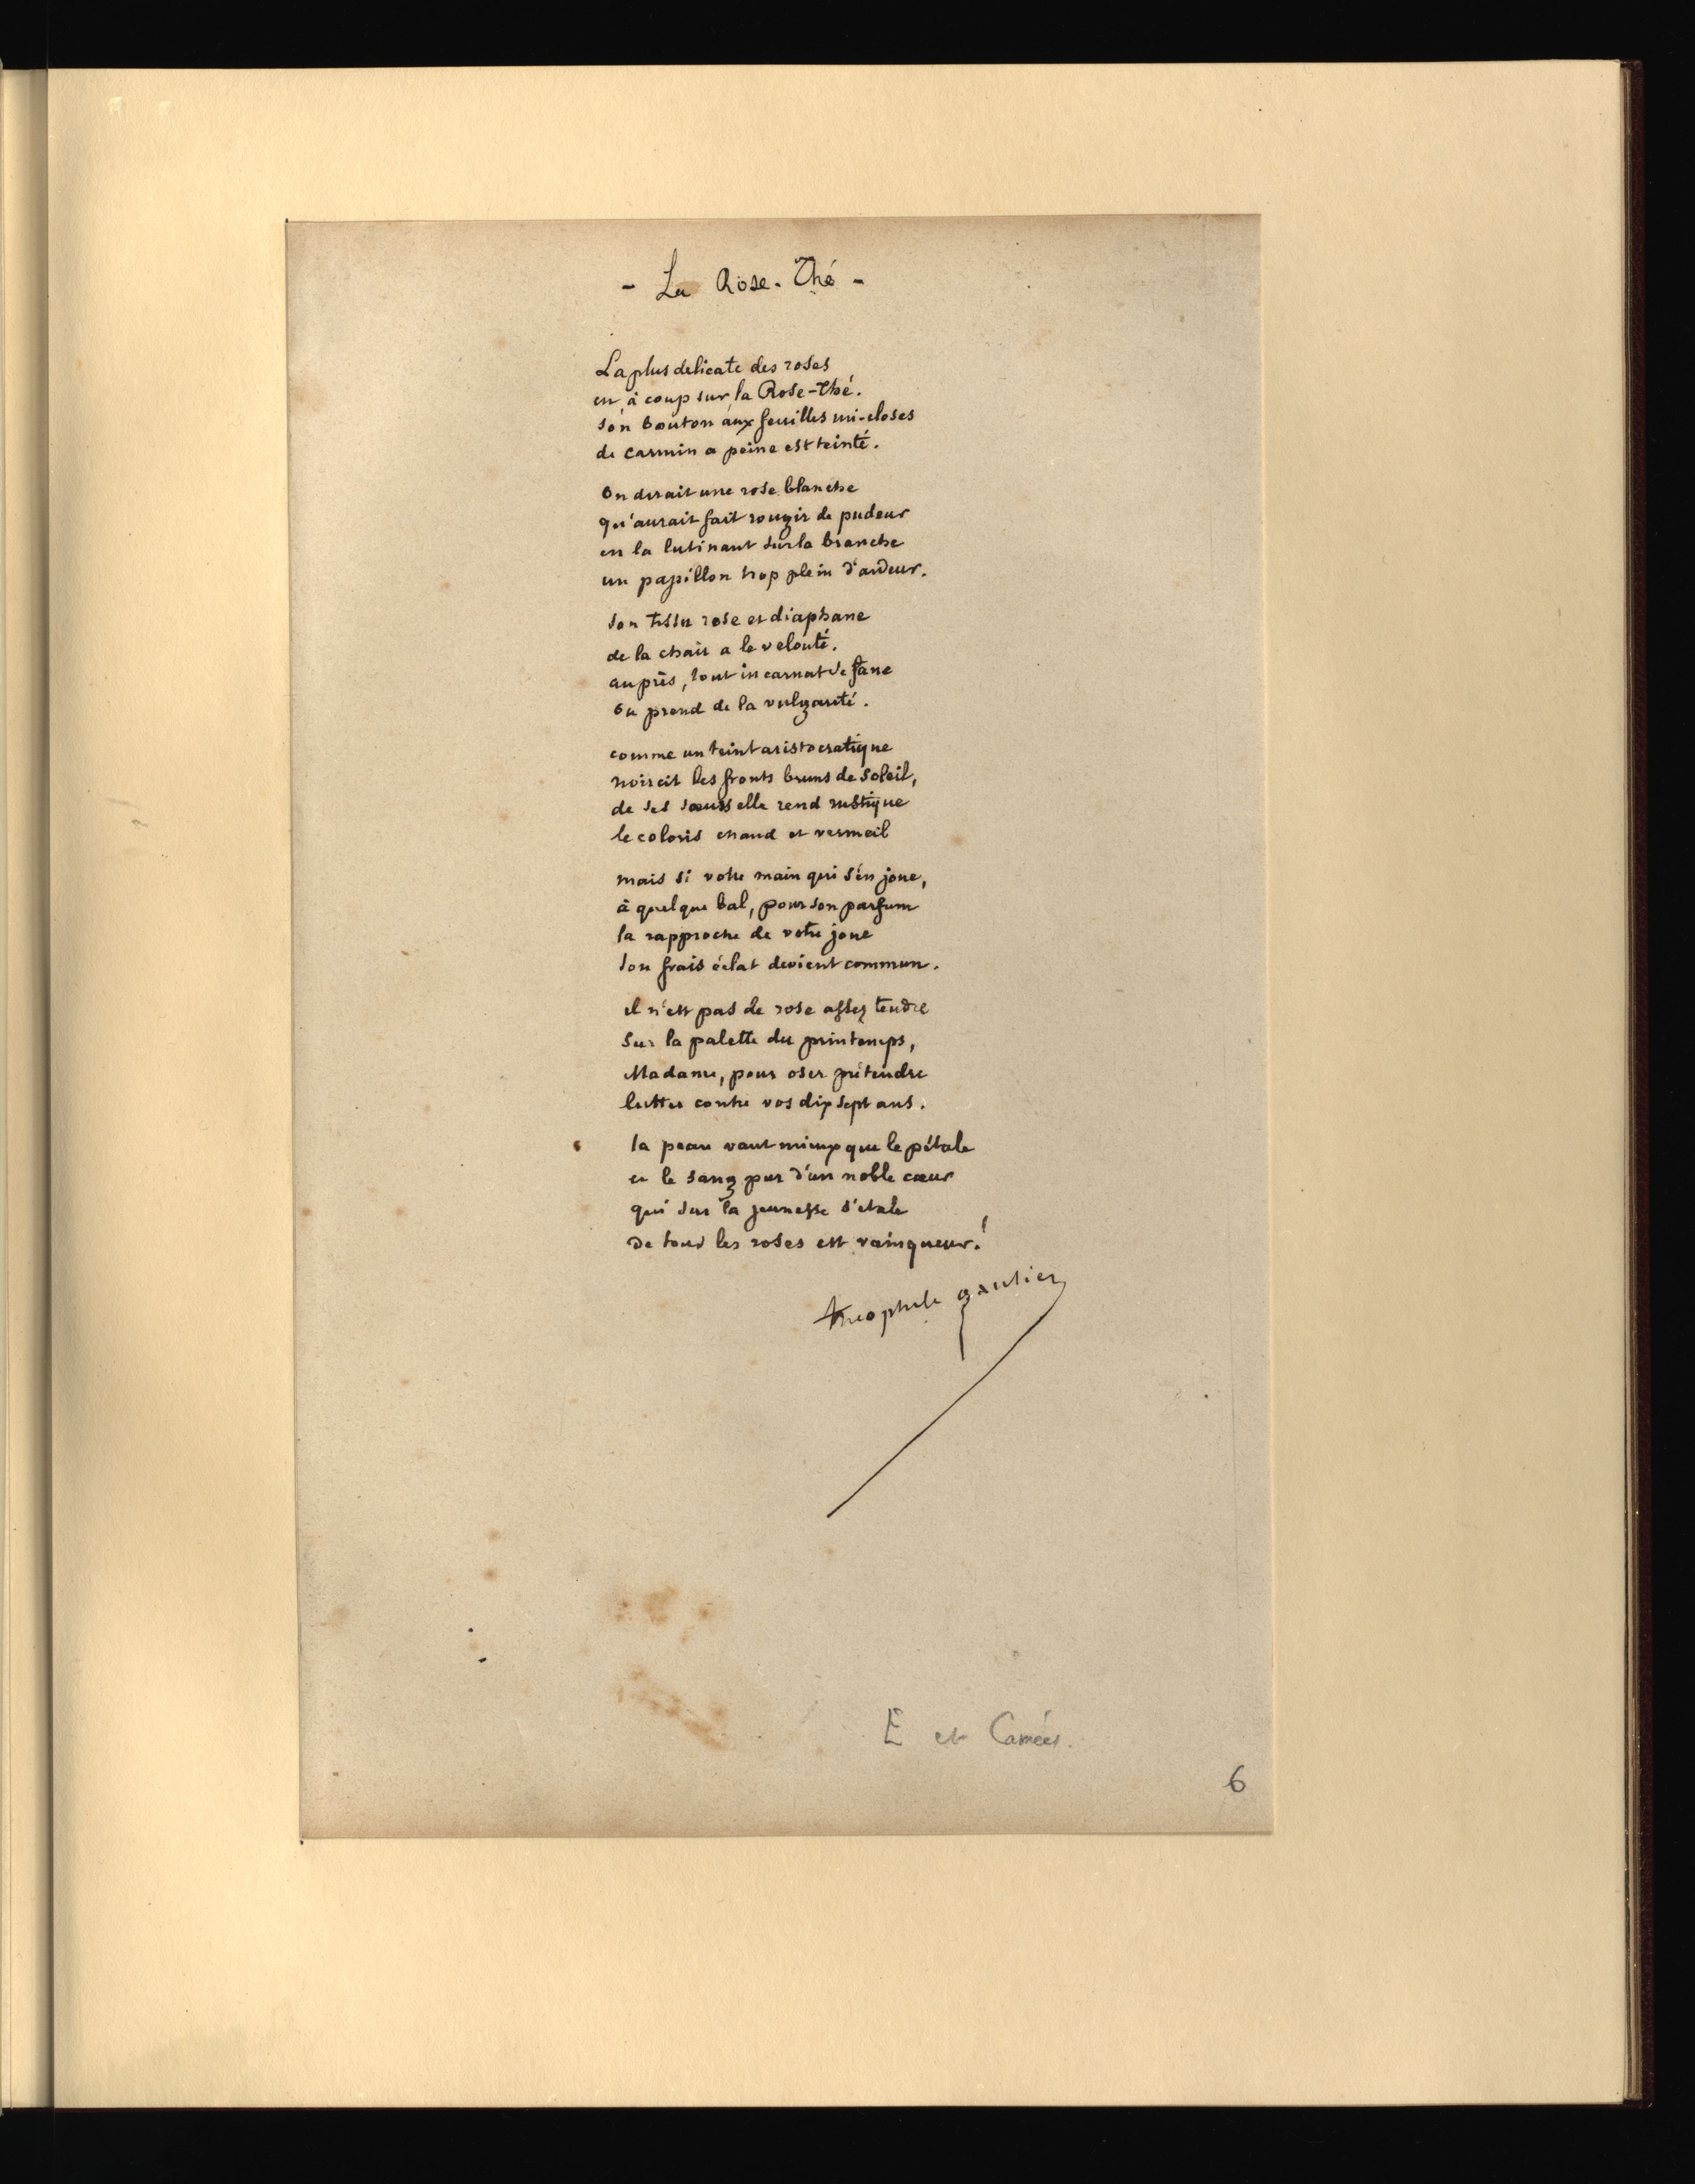 - La Rose-Thé -
La plus delicate des roses
est, à coup sur, la Rose-Thé.
son bouton aux feuilles mi-closes
de carmin a peine est teinté.
On dirait une rose blanche
qu'aurait fait rougir de pudeur
en la lutinant sur la branche
un papillon trop plein d'ardeur.
son tissu rose et diaphane
de la chair a le velouté.
auprès, tout incarnat se fane
ou prend de la vulgarité.
comme un teint aristocratique
noircit les fronts bruns de soleil,
de ses sœurs elle rend rustique
le coloris chaud et vermeil
mais si votre main qui s'en joue,
à quelque bal, pour son parfum
la rapproche de votre joue
son frais éclat devient commun.
il n'est pas de rose assez tendre
sur la palette du printemps,
Madame, pour oser prétendre
lutter contre vos dix sept ans.
la peau vaut mieux que le pétale
et le sang pur d'un noble cœur
qui sur la jeunesse s'etale
De tous les roses est vainqueur!
theophile gautier
E et Camées.
6